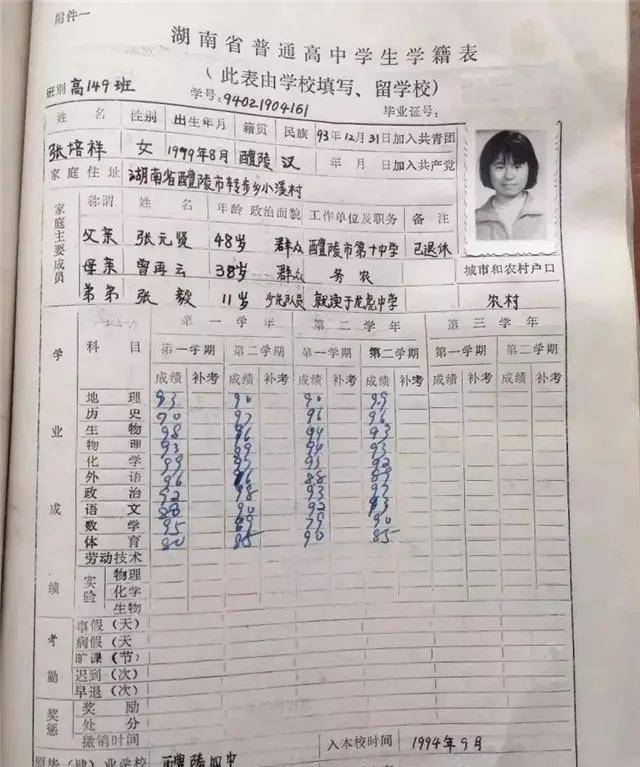 附件一
湖南省普通高中学生学籍表
(此表由学校填写、留学校)
班别 高149班 学号:94021904161 毕业证号:
姓名 性别 出生年月 籍贯 民族 93年12月31日加入共青团
张培祥 女 1979年8月 醴陵 汉 年 月 日加入共产党
家庭住址 湖南省醴陵市转步乡小溪村
家庭主要成员 称谓 姓名 年龄 政治面貌 工作单位及职务 备注
父亲 张元贤 48岁 群众 醴陵市第十中学 已退休
母亲 曾再云 38岁 群众 务农 城市和农村户口
弟弟 张毅 11岁 少先队员 就读于龙虎中学 农村
学业成绩 科目 第一学年 第二学年 第三学年
第一学期 第二学期 第一学期 第二学期 第一学期 第二学期
成绩 补考 成绩 补考 成绩 补考 成绩 补考 成绩 补考 成绩 补考
地理 93 90 90 99
历史 90 97 96 96
生物 98 96 94 93
物理 93 89 94
化学 99 97 93 92
外语 96 96 88
政治 92 98 93 97
语文 88 90 92 93
数学 95 89 79 90
体育 80 85 90 85
劳动技术
实验 物理
化学
生物
考勤 事假(天)
病假(天
旷课(节)
迟到(次)
早退(次)
奖惩 奖励
处分
撤销时间
原毕(肄)业学校 醴陵四中 入本校时间 1994年9月